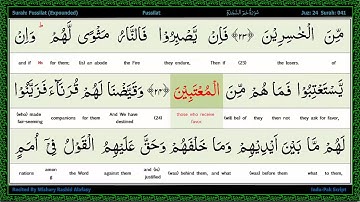 Surah: Fussilat (Expounded) Fussilat سُورَةُ حٰمٓ السَّجْدَة Juz: 24 Surah: 041
مِّنَ الْخٰسِرِيْنَ ﴿٢٣﴾ فَاِنْ يَّصْبِرُوْا فَالنَّارُ مَثْوًى لَّهُمْ ۚ وَاِنْ
and if No for them; (is) an abode the Fire they endure, Then if the losers. of
يَّسْتَعْتِبُوْا فَمَا هُمْ مِّنَ الْمُعْتَبِيْنَ ﴿٢٤﴾ وَقَيَّضْنَا لَهُمْ قُرَنَآءَ فَزَيَّنُوْا
(who) made fair-seeming companions for them And We have destined (24) those who receive favor. (will be) of they then not they ask for favor,
لَهُمْ مَّا بَيْنَ اَيْدِيْهِمْ وَمَا خَلْفَهُمْ وَحَقَّ عَلَيْهِمُ الْقَوْلُ فِيْٓ اُمَمٍ
nations among the Word against them and (is) justified (was) behind them, and what (was) before them what to them,
Recited By Mishary Rashid Alafasy Indo-Pak Script